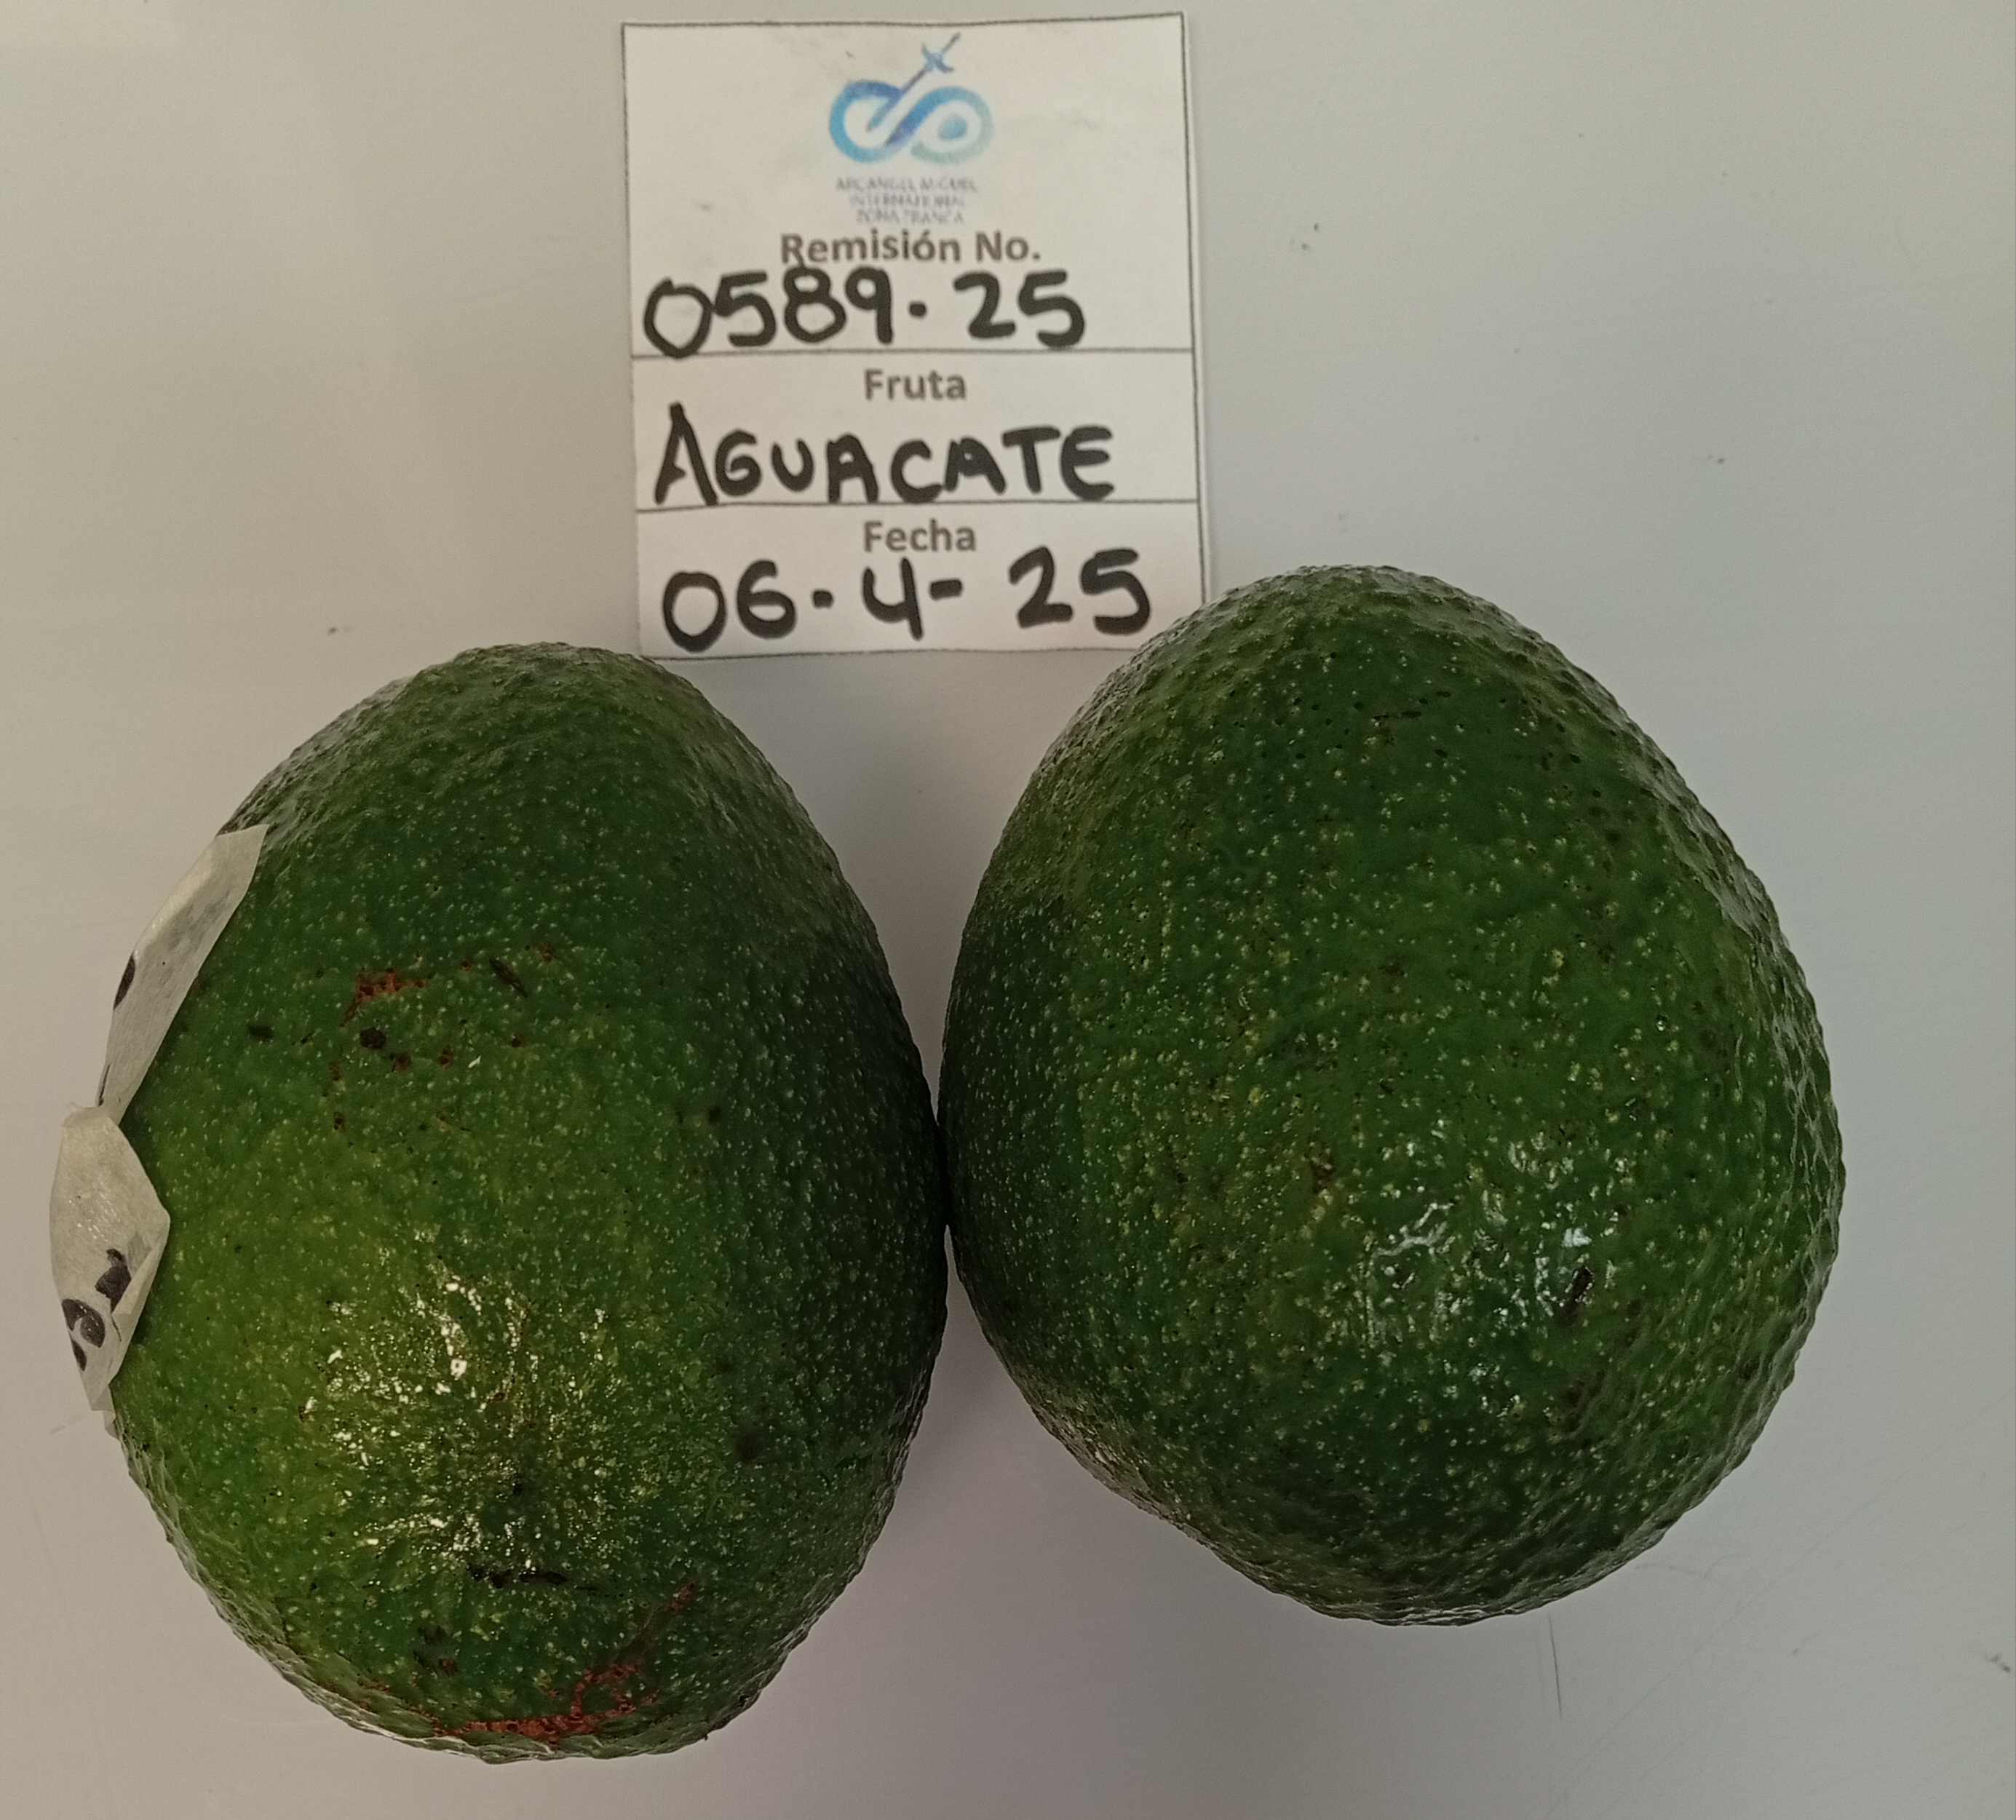 ARCANGEL MIGUEL
INTERNATIONAL
ZONA FRANCA
Remisión No.
0589-25
Fruta
AGUACATE
Fecha
06-4-25